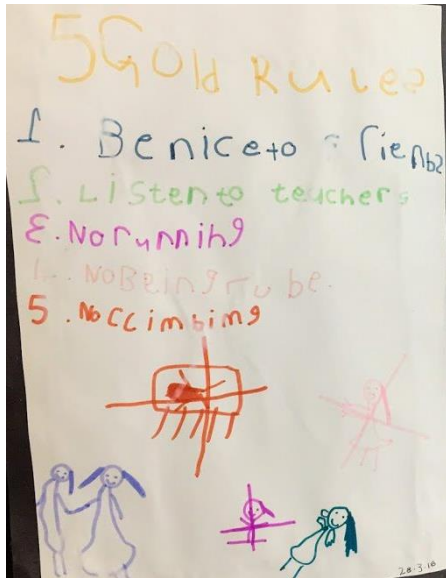 5 Gold Rules
1. Be nice to friends
2. Listen to teachers
3. No running
4. No Being rube.
5. No Cclimbimg
20.3.10